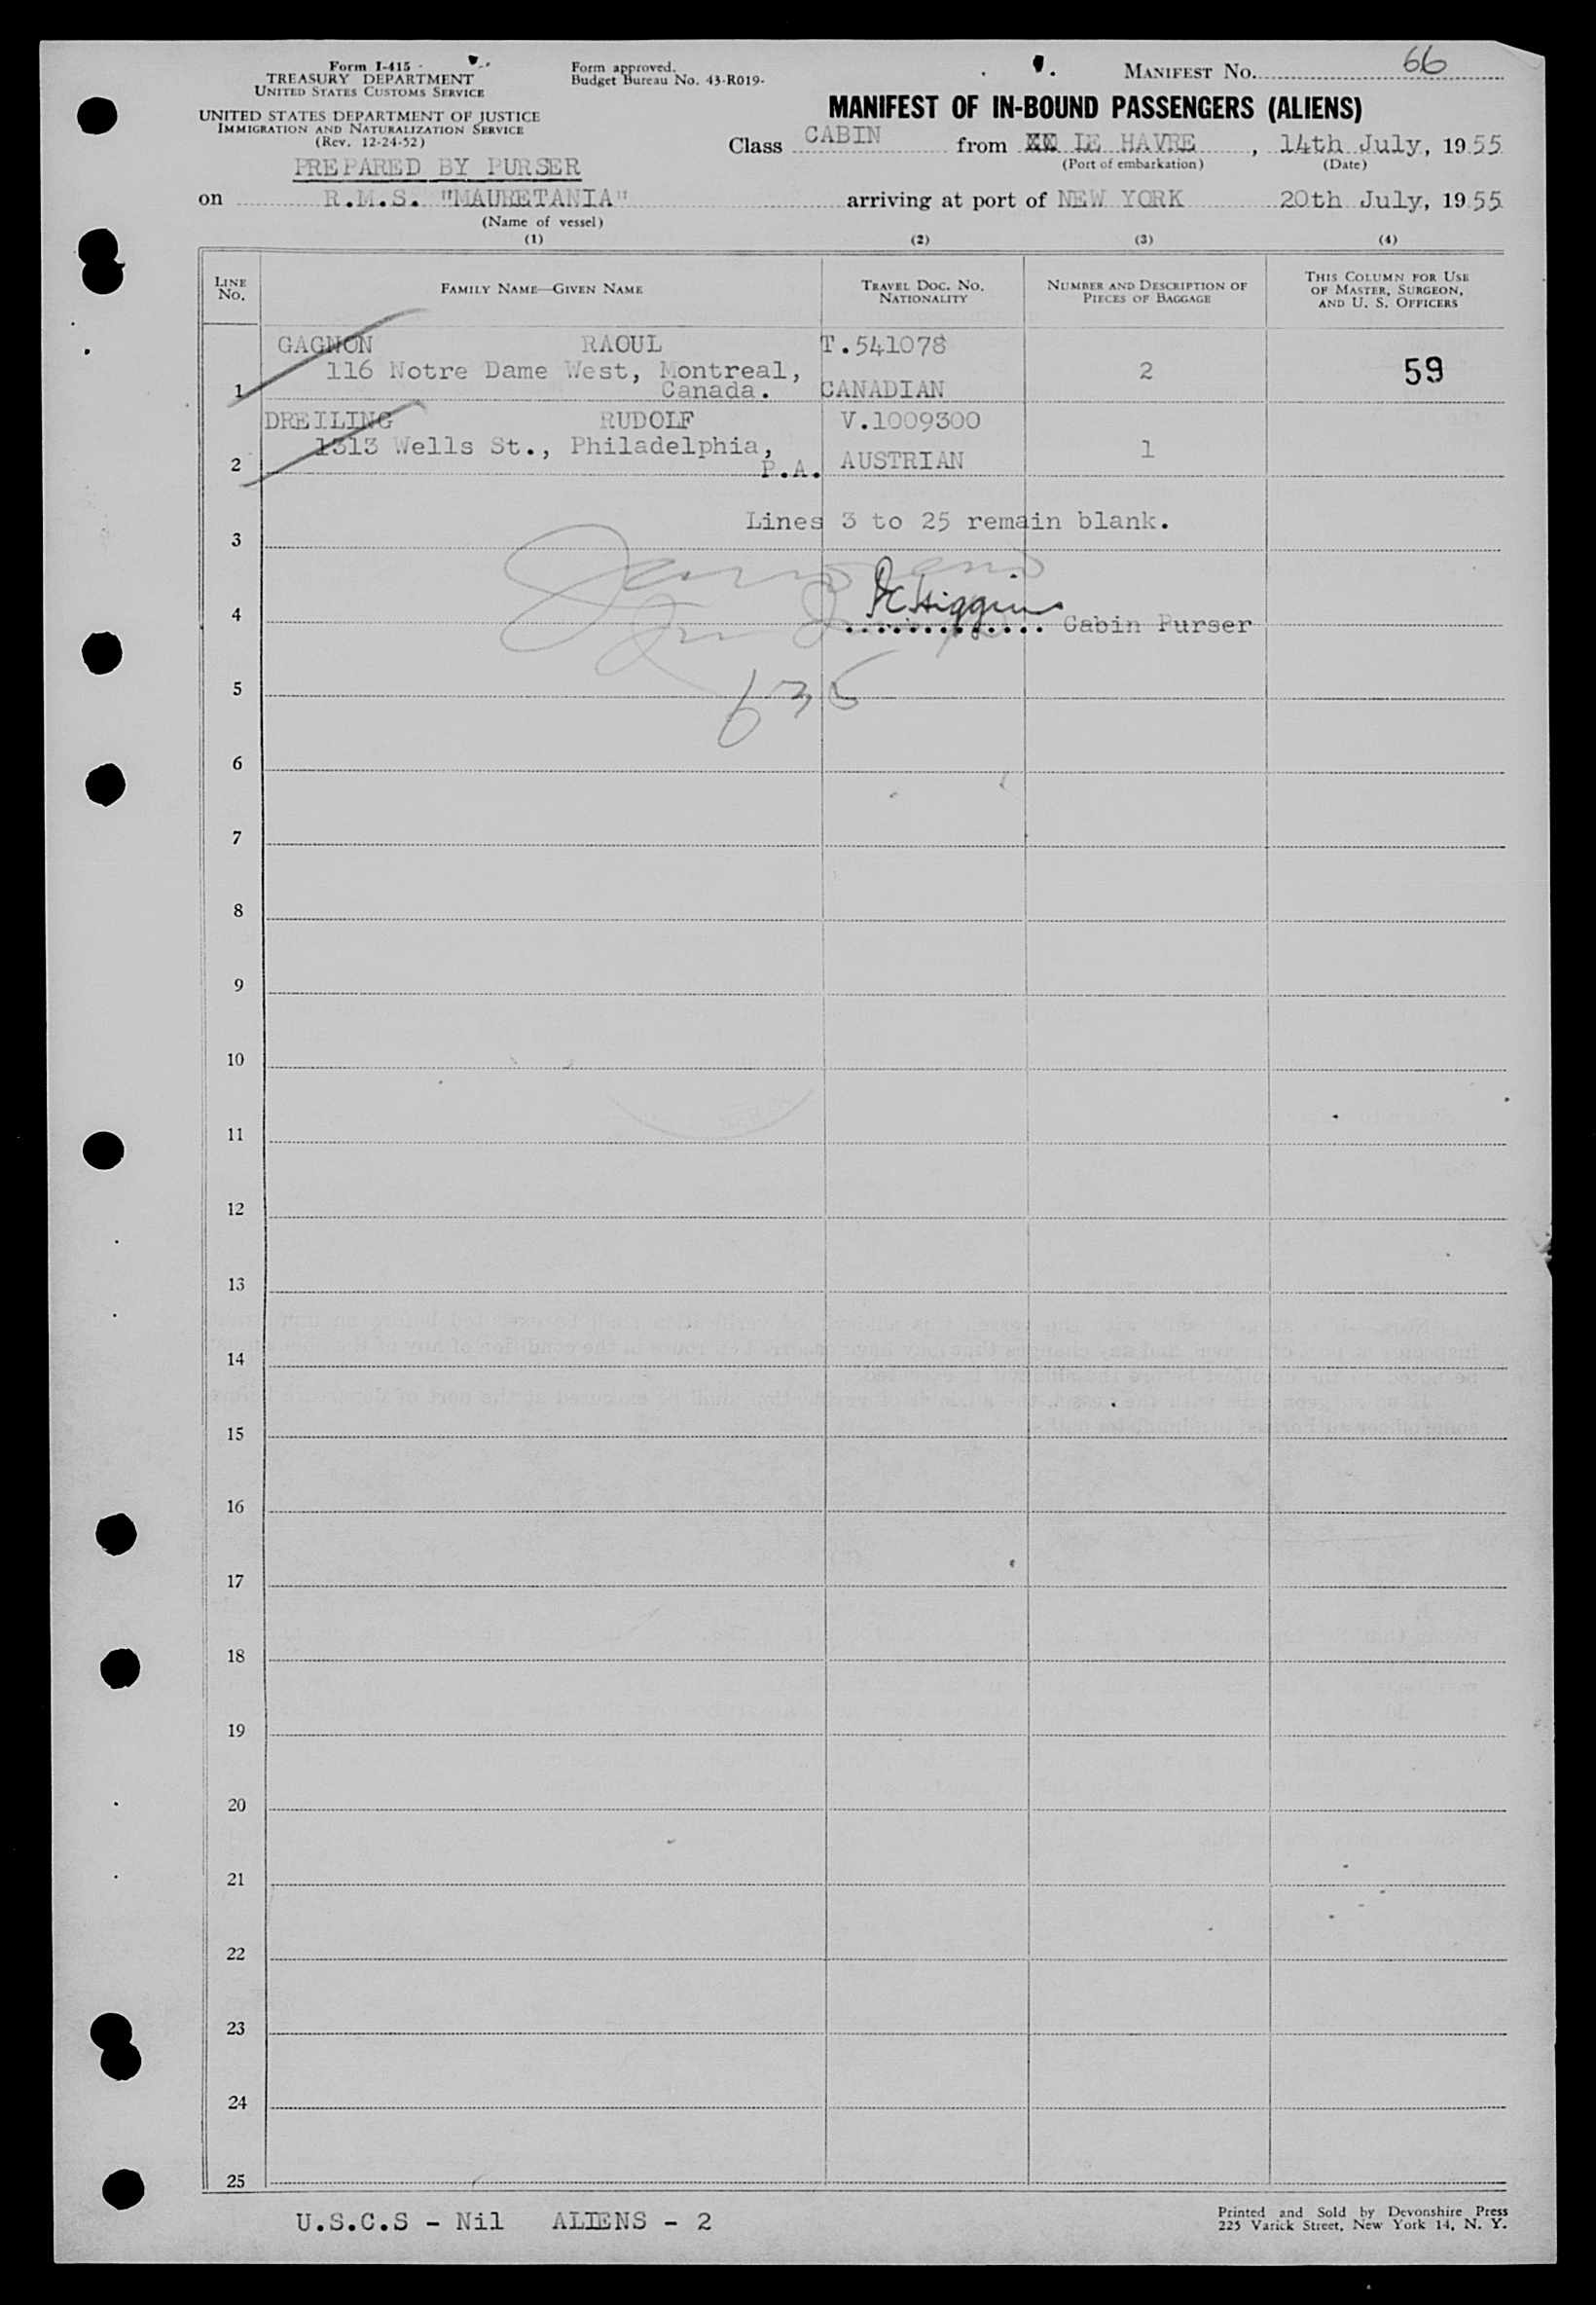 Form I-415
TREASURY DEPARTMENT
UNITED STATES CUSTOMS SERVICE
UNITED STATES DEPARTMENT OF JUSTICE
IMMIGRATION AND NATURALIZATION SERVICE
(Rev. 12-24-52)
PREPARED BY PURSER
Form approved.
Budget Bureau No. 43-R019.
MANIFEST No. 66
MANIFEST OF IN-BOUND PASSENGERS (ALIENS)
Class CABIN from LE HAVRE, 14th July, 1955
(Port of embarkation) (Date)
on R.M.S. "MAURETANIA" arriving at port of NEW YORK 20th July, 1955
(Name of vessel)
(1) (2) (3) (4)
LINE No. FAMILY NAME—GIVEN NAME TRAVEL DOC. NO. NATIONALITY NUMBER AND DESCRIPTION OF PIECES OF BAGGAGE THIS COLUMN FOR USE OF MASTER, SURGEON, AND U. S. OFFICERS
GAGNON RAOUL T.541078
116 Notre Dame West, Montreal, 2 59
1 Canada. CANADIAN
DREILING RUDOLF V.1009300
1313 Wells St., Philadelphia, 1
2 P.A. AUSTRIAN
Lines 3 to 25 remain blank.
3
Higgins
4 Cabin Purser
5
635
6
7
8
9
10
11
12
13
14
15
16
17
18
19
20
21
22
23
24
25
U.S.C.S - Nil ALIENS - 2
Printed and Sold by Devonshire Press
225 Varick Street, New York 14, N. Y.